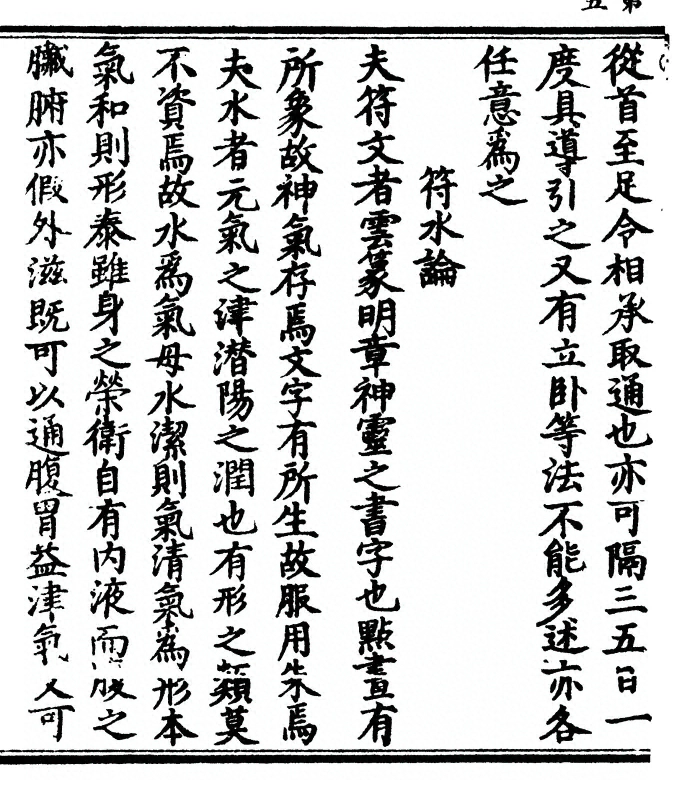 從首至足令相承取通也亦可隔三五日一
度具導引之又有立卧等法不能多述亦各
任意爲之
符水論
夫符文者雲篆明章神靈之書字也點畫有
所象故神氣存焉文字有所生故服用朱焉
夫水者元氣之津潜陽之潤也有形之類莫
不資焉故水爲氣母水潔則氣清氣爲形本
氣和則形泰雖身之榮衛自有内液而腹之
臟腑亦假外滋既可以通腹胃益津氣又可